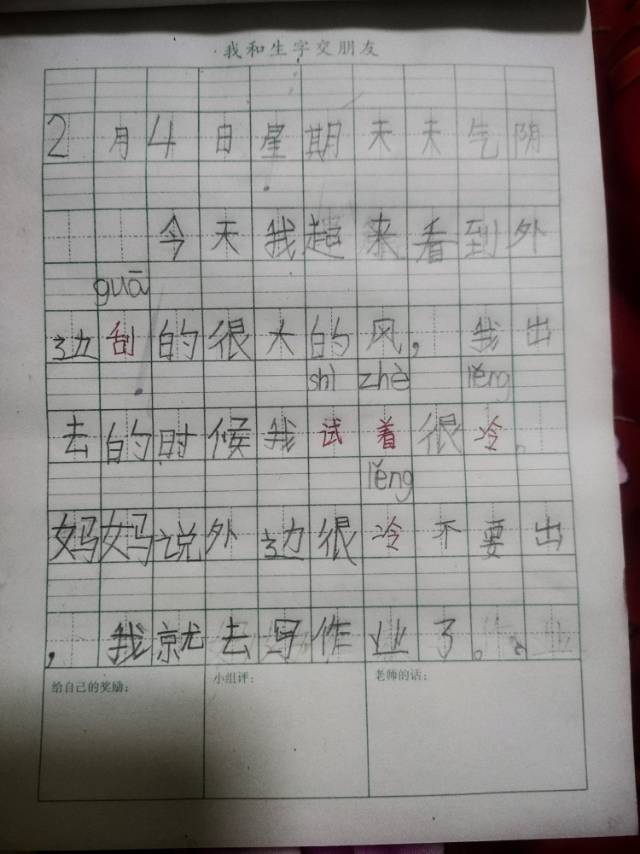 我和生字交朋友
2月4日星期天天气阴
今天我起来看到外
guā
边刮的很大的风，我出
shì zhè lěng
去的时候我试着很冷。
lěng
妈妈说外边很冷不要出
，我就去写作业了。
给自己的奖励： 小组评： 老师的话：